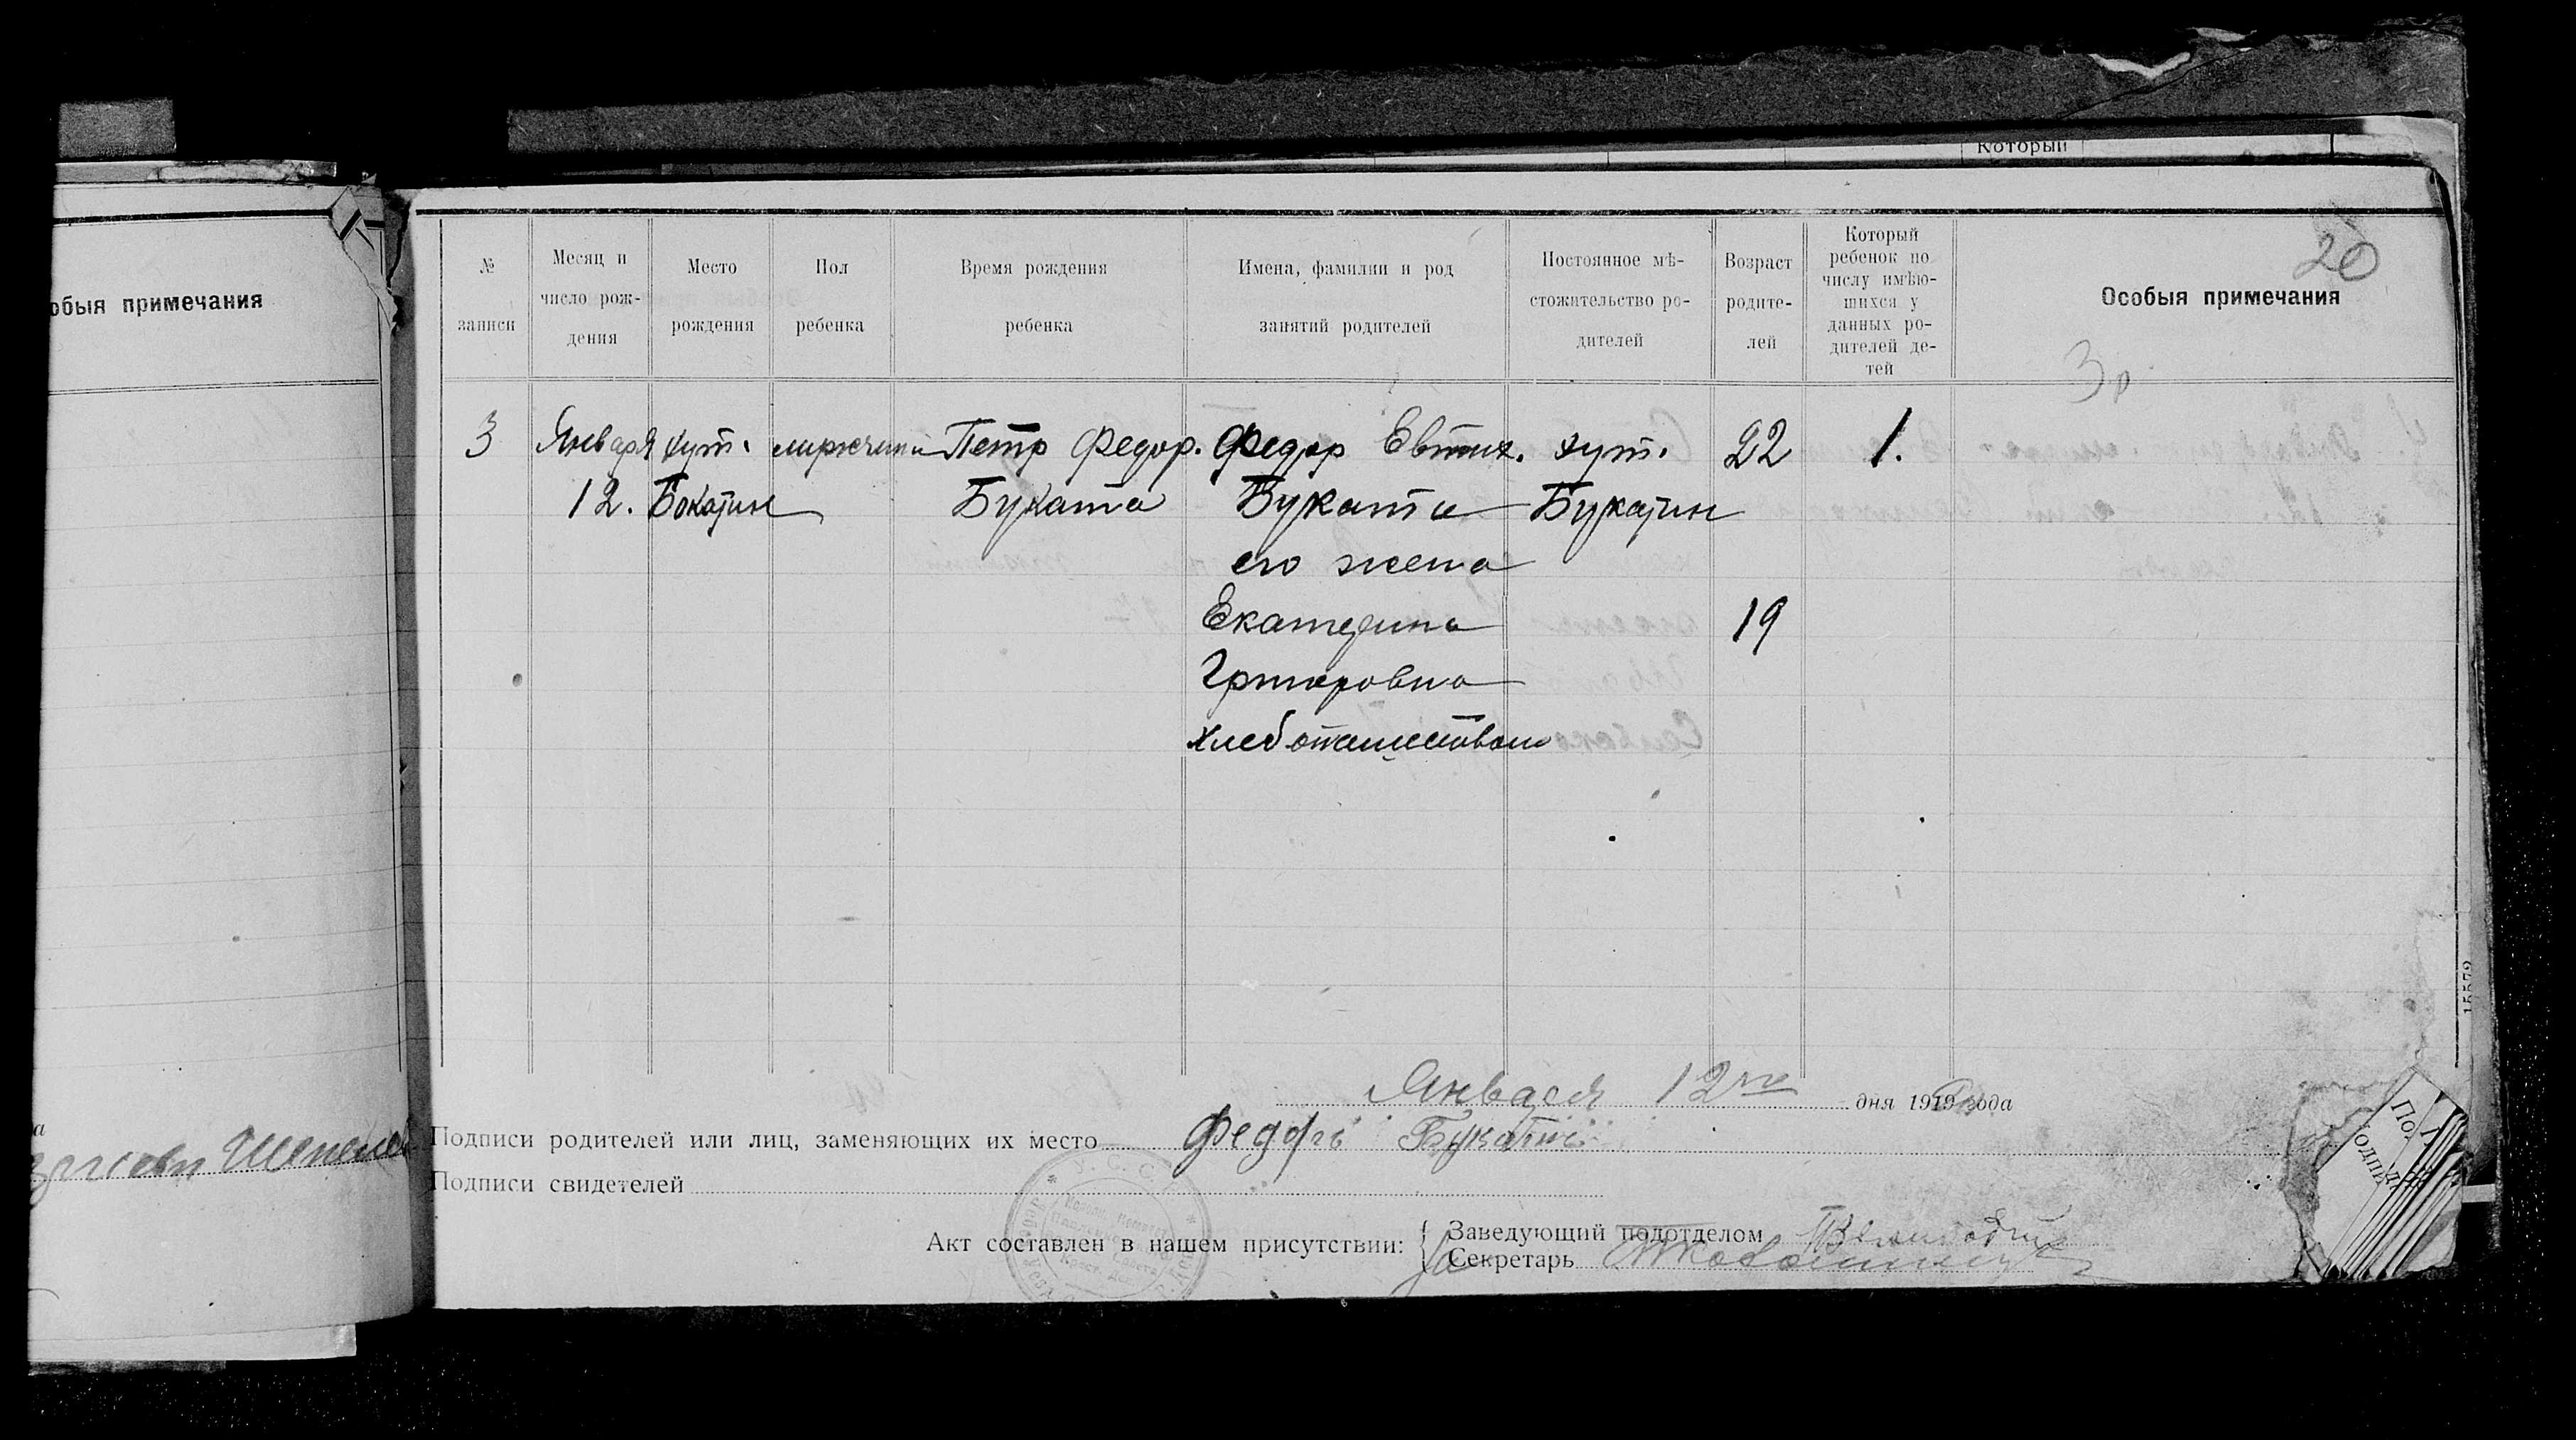 Который
обыя примечания
№ записи
Месяц и число рож-дения
Место рождения
Пол ребенка
Время рождения ребенка
Имена, фамилии и род занятий родителей
Постоянное мѣ-стожительство ро-дителей
Возраст родите-лей
Который ребенок по числу имѣю-шихся у данных ро-дителей де-тей
Особыя примечания
20
3
3 Января хут. Петр Федор. Федор Евтих. хут. 22 1.
12. Бокатин Буката Буката Букатин
его жена
Екатерина 19
Января 12го дня 19 года
Подписи родителей или лиц, заменяющих их место Федоръ
Подписи свидетелей
Акт составлен в нашем присутствии:
Заведующий подотделом
Секретарь
15579